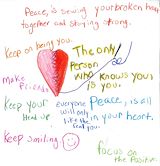 Peace, is sewing your broken heart
together and staying strong.
Keep on being you.
The only
Person
who knows you
is you.
Make
Friends
Keep your
Head up
everyone
will only
like the
real you.
Peace, is all
in your heart.
Keep smiling
Focus on
the Positive